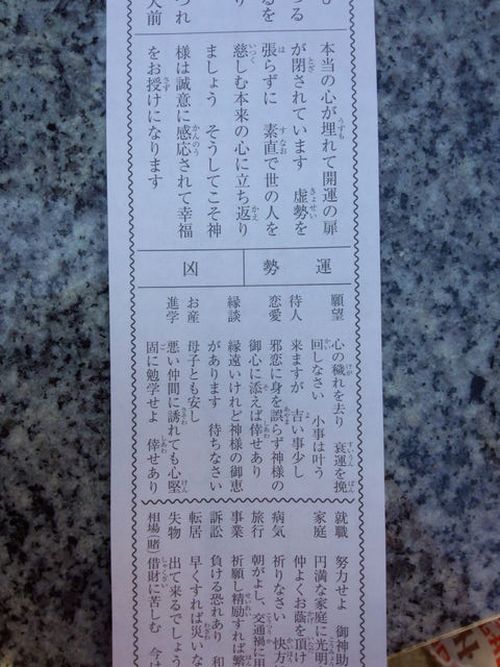 る
るを
り
つれ
本当の心が埋れて開運の扉
が閉されています　虚勢を
張らずに　素直で世の人を
慈しむ本来の心に立ち返り
ましょう　そうしてこそ神
様は誠意に感応されて幸福
をお授けになります
運勢　凶
願望　心の穢れを去り　衰運を挽
回しなさい　小事は叶う
待人　来ますが　吉い事少し
恋愛　邪恋に身を誤らず神様の
御心に添えば倖せあり
縁談　縁遠いけれど神様の御恵
があります　待ちなさい
お産　母子とも安し
進学　悪い仲間に誘れても心堅
固に勉学せよ　倖せあり
就職　努力せよ　御神助
家庭　円満な家庭に光明
仲よくお蔭を頂け
病気　祈りなさい　快方
旅行　朝がよし、交通禍に用
事業　祈願し精励すれば繁
訴訟　負ける恐れあり　和
転居　早くすれば災いな
失物　出て来るでしょう
相場(賭)　借財に苦しむ　今は